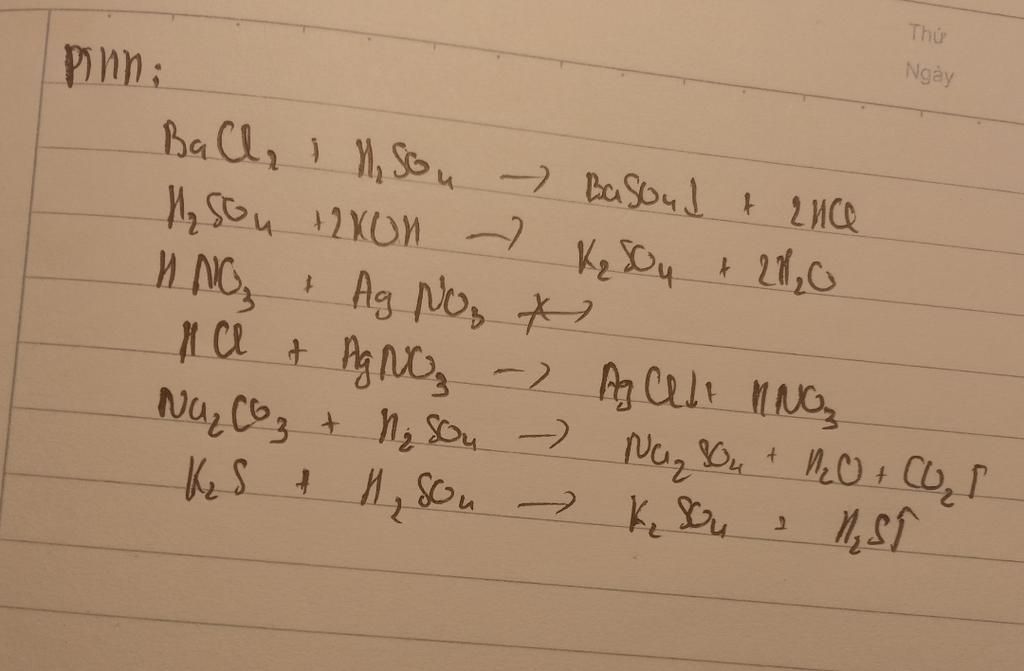 Thứ
Ngày
PTHH:
BaCl₂ + H₂SO₄ → BaSO₄↓ + 2HCl
H₂SO₄ + 2KOH → K₂SO₄ + 2H₂O
HNO₃ + AgNO₃ ↛
HCl + AgNO₃ → AgCl↓ + HNO₃
Na₂CO₃ + H₂SO₄ → Na₂SO₄ + H₂O + CO₂↑
K₂S + H₂SO₄ → K₂SO₄ + H₂S↑